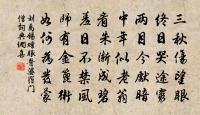 三秋傷望眼
終日哭途窮
兩目今先暗
中年似老翁
看朱漸成碧
羞日不禁風
師有金篦術
如何為發蒙
劉禹錫贈眼醫婆羅門
僧詞典網